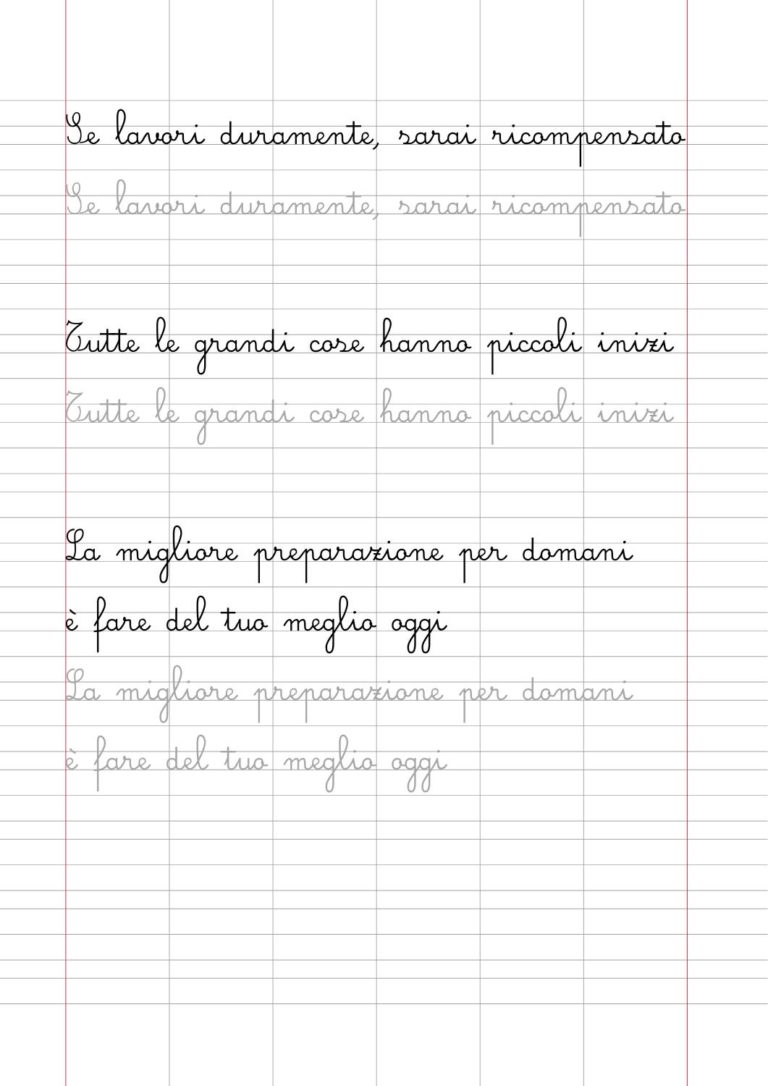 Se lavori duramente, sarai ricompensato
Se lavori duramente, sarai ricompensato
Tutte le grandi cose hanno piccoli inizi
Tutte le grandi cose hanno piccoli inizi
La migliore preparazione per domani
è fare del tuo meglio oggi
La migliore preparazione per domani
è fare del tuo meglio oggi